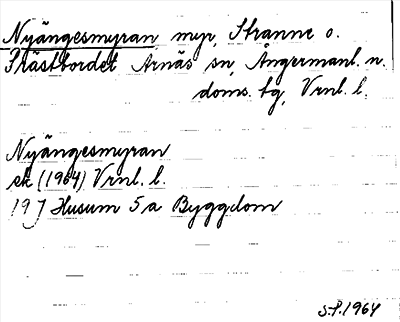 Nyängesmyran myr, Stranne o.
Prästbordet Arnäs sn, Ångermanl. n.
doms. tg, Vrnl. l.
Nyängesmyran
ek (1964) Vrnl. l.
19 J Husum 5 a Byggdom
S.P. 1964